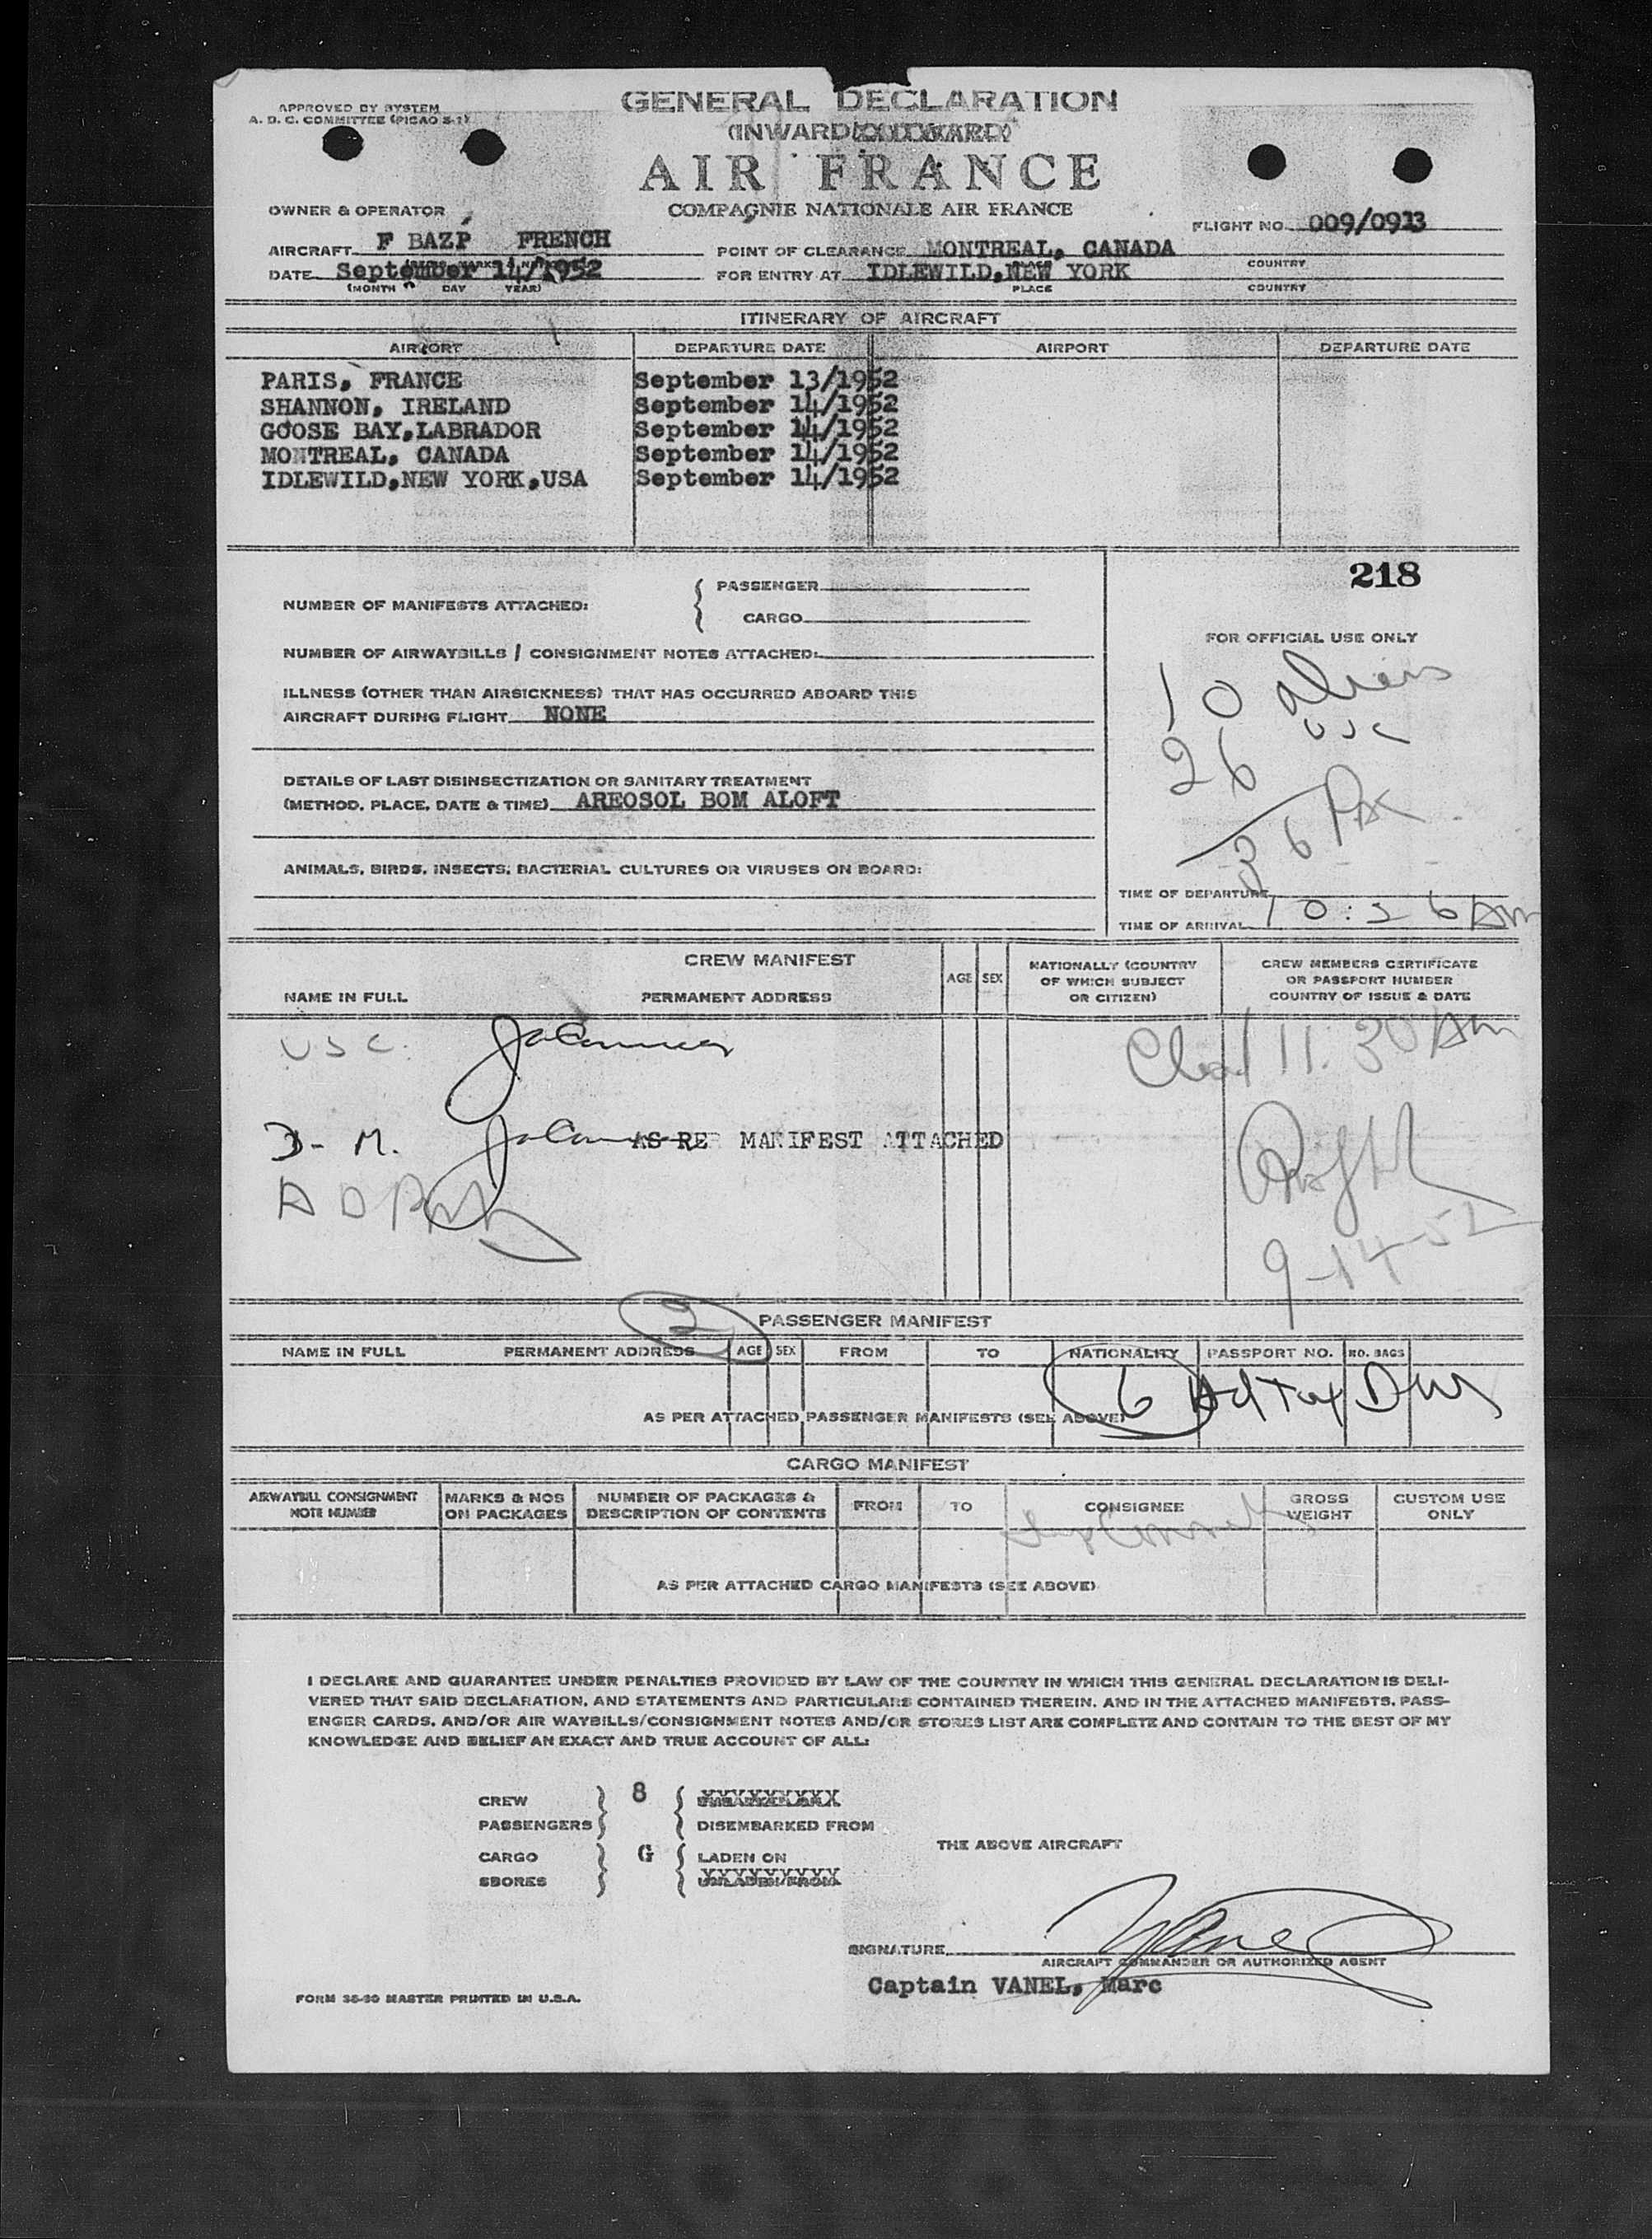 APPROVED BY SYSTEM
A. D. C. COMMITTEE (PICAO S-1)
GENERAL DECLARATION
(INWARD
AIR FRANCE
COMPAGNIE NATIONALE AIR FRANCE
OWNER & OPERATOR
FLIGHT NO. 009/0913
AIRCRAFT F BAZP FRENCH
POINT OF CLEARANCE MONTREAL, CANADA
PLACE COUNTRY
DATE September 14/1952
(MONTH DAY YEAR)
FOR ENTRY AT IDLEWILD,NEW YORK
PLACE COUNTRY
ITINERARY OF AIRCRAFT
AIRPORT DEPARTURE DATE AIRPORT DEPARTURE DATE
PARIS, FRANCE September 13/1952
SHANNON, IRELAND September 14/1952
GOOSE BAY,LABRADOR September 14/1952
MONTREAL, CANADA September 14/1952
IDLEWILD,NEW YORK,USA September 14/1952
218
NUMBER OF MANIFESTS ATTACHED: { PASSENGER
CARGO
FOR OFFICIAL USE ONLY
NUMBER OF AIRWAYBILLS / CONSIGNMENT NOTES ATTACHED:
10 Aliens
ILLNESS (OTHER THAN AIRSICKNESS) THAT HAS OCCURRED ABOARD THIS
AIRCRAFT DURING FLIGHT NONE
26 USC
DETAILS OF LAST DISINSECTIZATION OR SANITARY TREATMENT
(METHOD, PLACE, DATE & TIME) AREOSOL BOM ALOFT
36 Pax
ANIMALS, BIRDS, INSECTS, BACTERIAL CULTURES OR VIRUSES ON BOARD:
TIME OF DEPARTURE
TIME OF ARRIVAL 10:26 AM
CREW MANIFEST
NAME IN FULL PERMANENT ADDRESS AGE SEX
NATIONALLY (COUNTRY
OF WHICH SUBJECT
OR CITIZEN)
CREW MEMBERS CERTIFICATE
OR PASSPORT NUMBER
COUNTRY OF ISSUE & DATE
USC.
11:30 AM
D-M.
AS PER MANIFEST ATTACHED
9-14-52
2
PASSENGER MANIFEST
NAME IN FULL PERMANENT ADDRESS AGE SEX FROM TO NATIONALITY PASSPORT NO. NO. BAGS
6
AS PER ATTACHED PASSENGER MANIFESTS (SEE ABOVE)
CARGO MANIFEST
AIRWAYBILL CONSIGNMENT
NOTE NUMBER
MARKS & NOS
ON PACKAGES
NUMBER OF PACKAGES &
DESCRIPTION OF CONTENTS
FROM TO CONSIGNEE
GROSS
WEIGHT
CUSTOM USE
ONLY
AS PER ATTACHED CARGO MANIFESTS (SEE ABOVE)
I DECLARE AND GUARANTEE UNDER PENALTIES PROVIDED BY LAW OF THE COUNTRY IN WHICH THIS GENERAL DECLARATION IS DELI-
VERED THAT SAID DECLARATION, AND STATEMENTS AND PARTICULARS CONTAINED THEREIN, AND IN THE ATTACHED MANIFESTS, PASS-
ENGER CARDS, AND/OR AIR WAYBILLS/CONSIGNMENT NOTES AND/OR STORES LIST ARE COMPLETE AND CONTAIN TO THE BEST OF MY
KNOWLEDGE AND BELIEF AN EXACT AND TRUE ACCOUNT OF ALL:
CREW 8 XXXXXXXXX
PASSENGERS DISEMBARKED FROM
THE ABOVE AIRCRAFT
CARGO G LADEN ON
SBORES XXXXXXXXX
SIGNATURE
AIRCRAFT COMMANDER OR AUTHORIZED AGENT
Captain VANEL, Marc
FORM 35-30 MASTER PRINTED IN U.S.A.